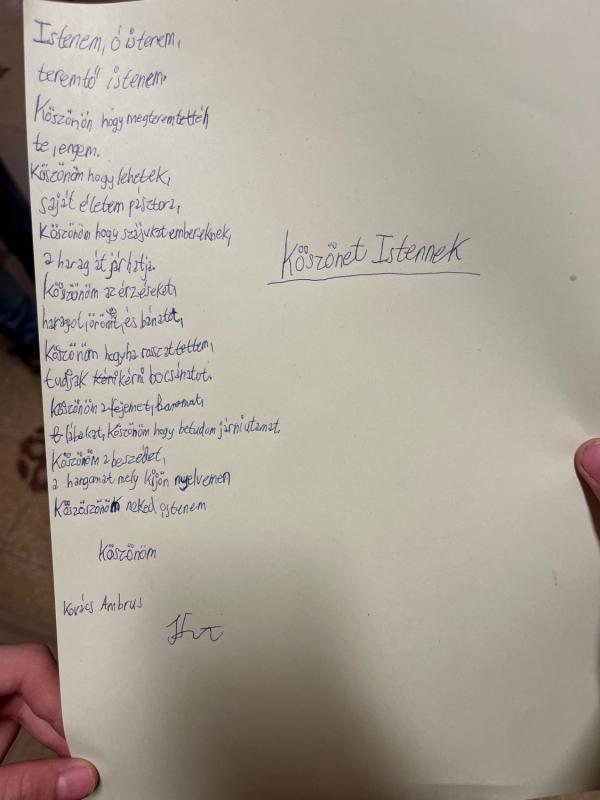 Istenem, ó istenem,
teremtő istenem.
Köszönön hogy megteremtettél
te, engem.
Köszönöm hogy lehetek,
saját életem pásztora,
Köszönöm hogy szájukat embereknek,
a harag át járhatja.
Köszönöm az érzéseket,
haragot, örömt, és bánatot,
Köszönöm hogyha rosszat tettem,
tudjak kérni bocsánatot.
Köszönön a fejemet, karomat,
lábakat, Köszönöm hogy betudom járni utamat.
Köszönöm a beszédet,
a hangomat mely kijön nyelvemen
Köszöszönöm neked istenem
Köszönöm
Kovács Ambrus
Köszönet Istennek